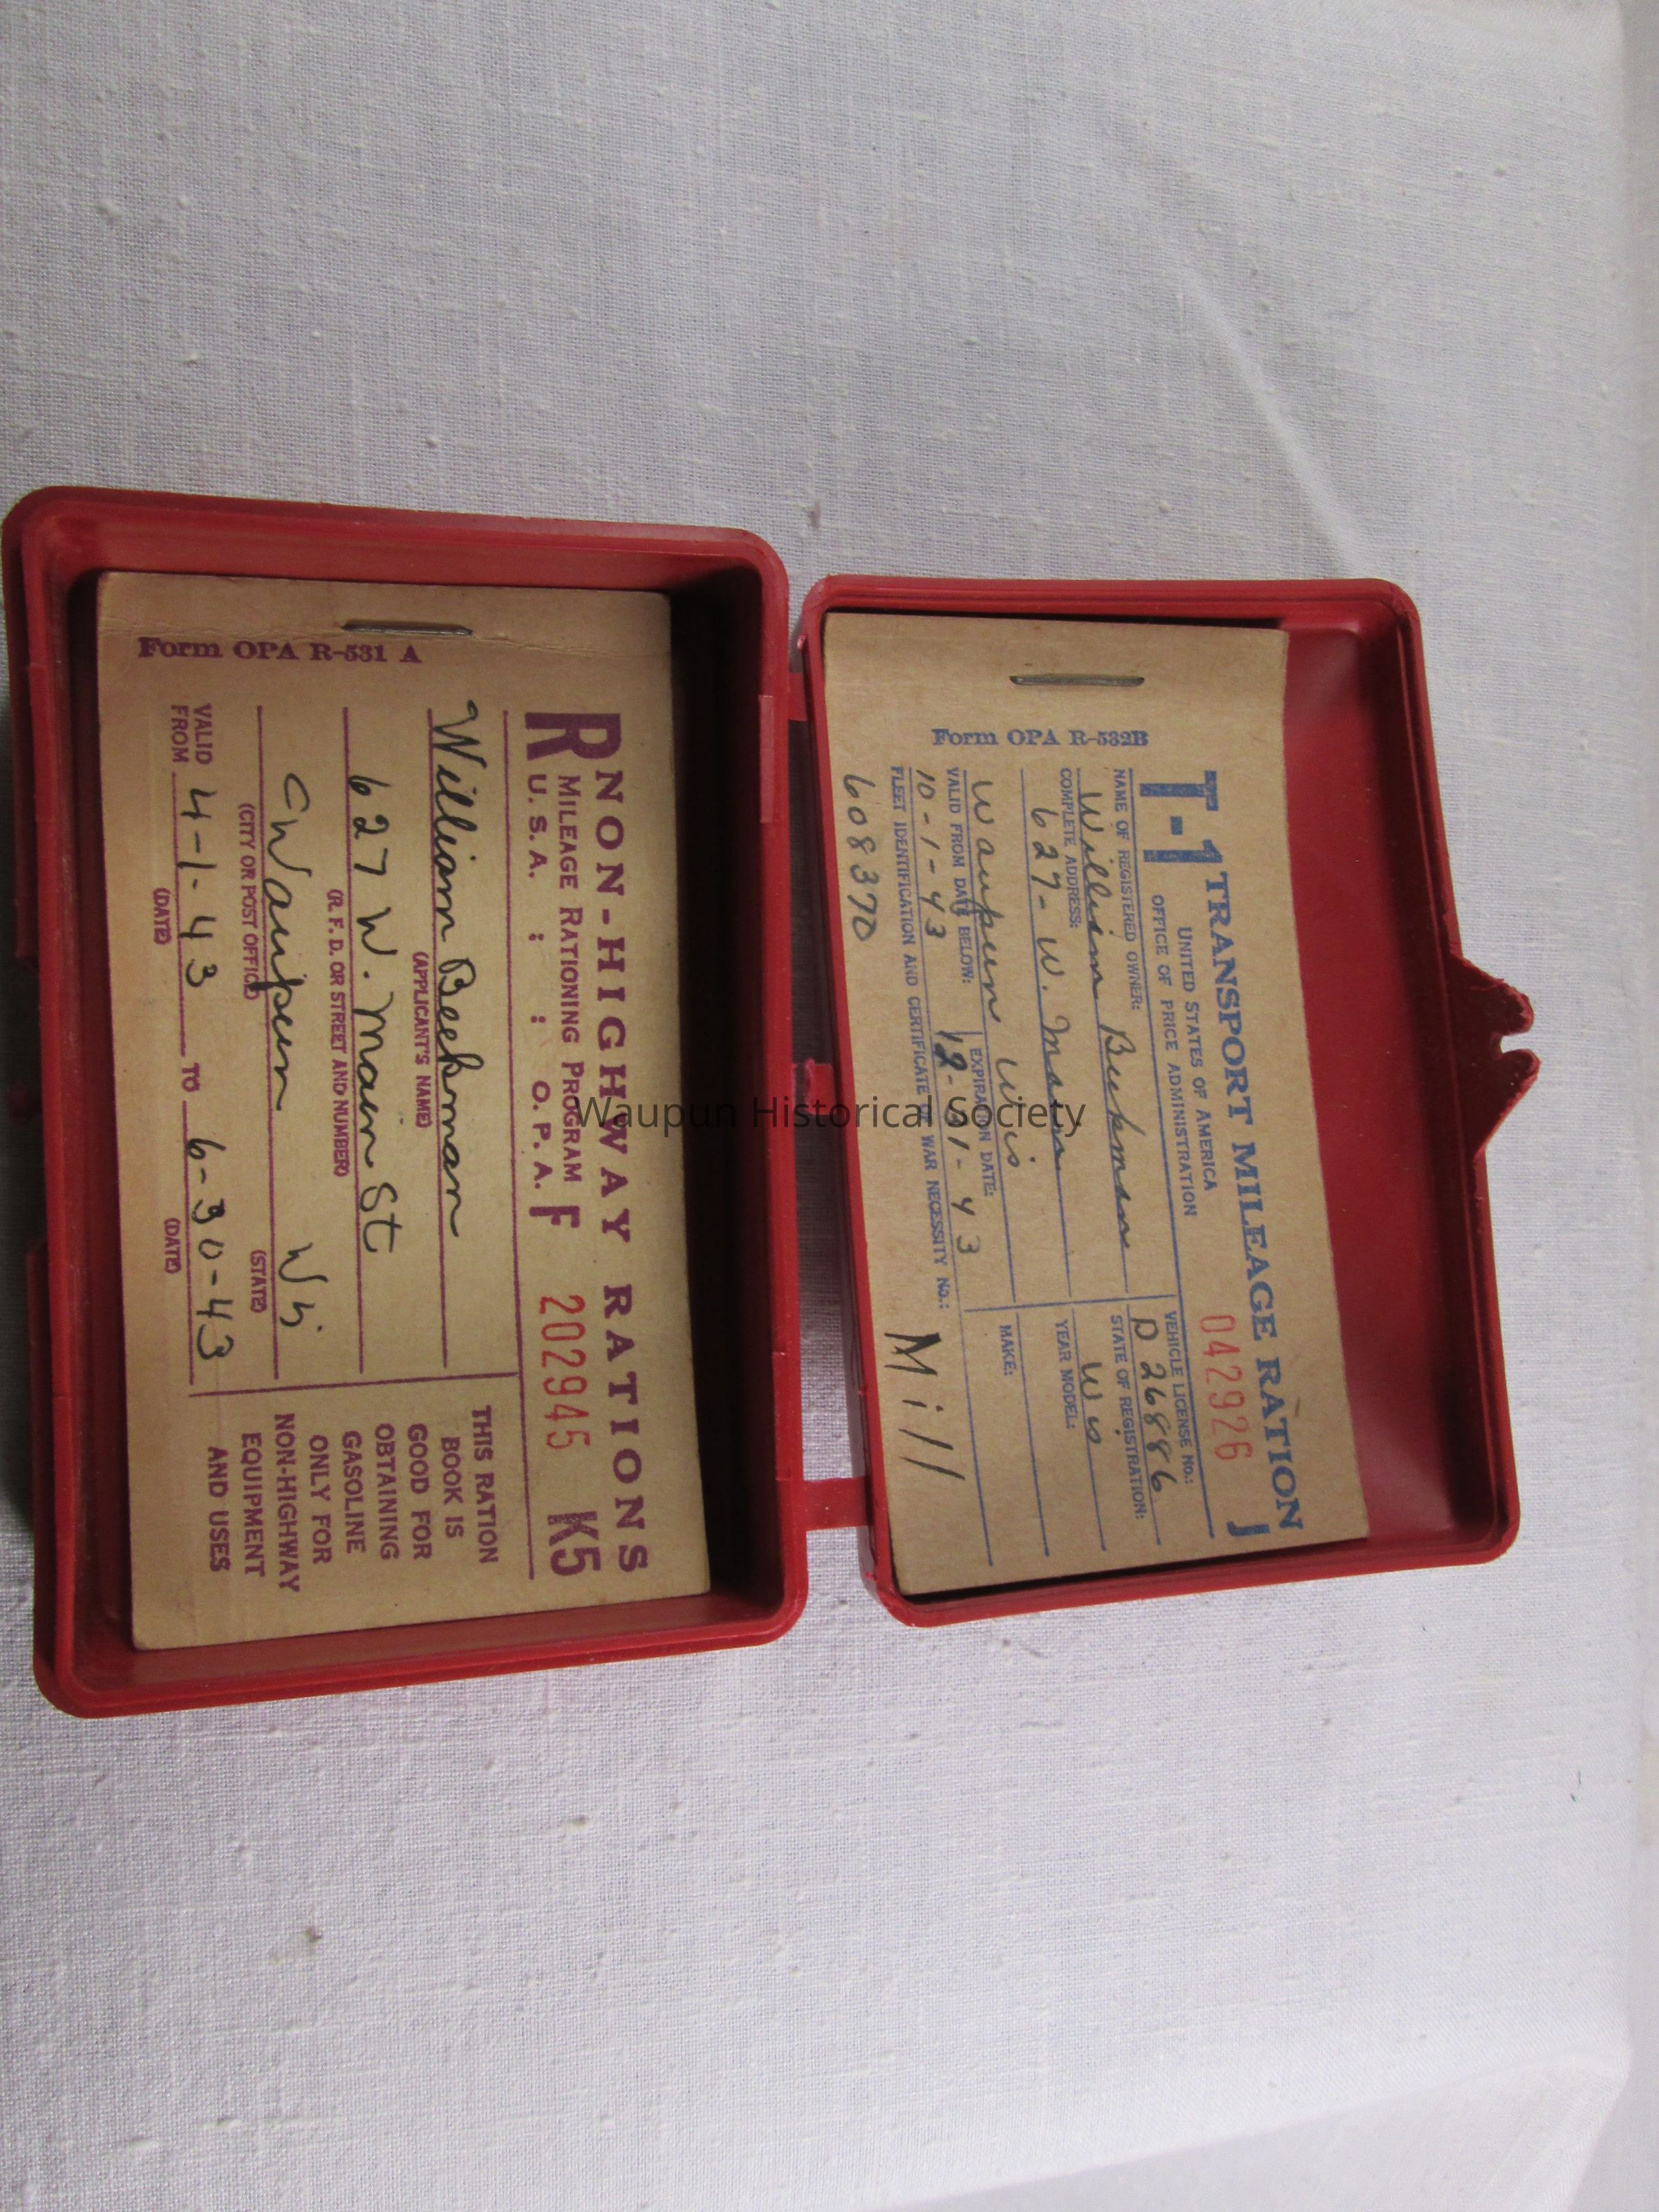 T-1 TRANSPORT MILEAGE RATION
UNITED STATES OF AMERICA
OFFICE OF PRICE ADMINISTRATION
042926 J
NAME OF REGISTERED OWNER:
William Beekman
COMPLETE ADDRESS:
627- W. Main
Waupun Wis
VALID FROM DATE BELOW:
10-1-43
EXPIRATION DATE:
12-31-43
FLEET IDENTIFICATION AND CERTIFICATE OF WAR NECESSITY NO.:
608370
Mill
VEHICLE LICENSE NO.:
D 26886
STATE OF REGISTRATION:
Wis
YEAR MODEL:
MAKE:
Form OPA R-532B
NON-HIGHWAY RATIONS
R MILEAGE RATIONING PROGRAM
U. S. A. : : O. P. A. F 202945 K5
William Beekman
(APPLICANT'S NAME)
627 W. Main St
(R. F. D. OR STREET AND NUMBER)
Waupun Wis
(CITY OR POST OFFICE) (STATE)
VALID FROM 4-1-43 TO 6-30-43
(DATE) (DATE)
THIS RATION
BOOK IS
GOOD FOR
OBTAINING
GASOLINE
ONLY FOR
NON-HIGHWAY
EQUIPMENT
AND USES
Form OPA R-531 A
Waupun Historical Society